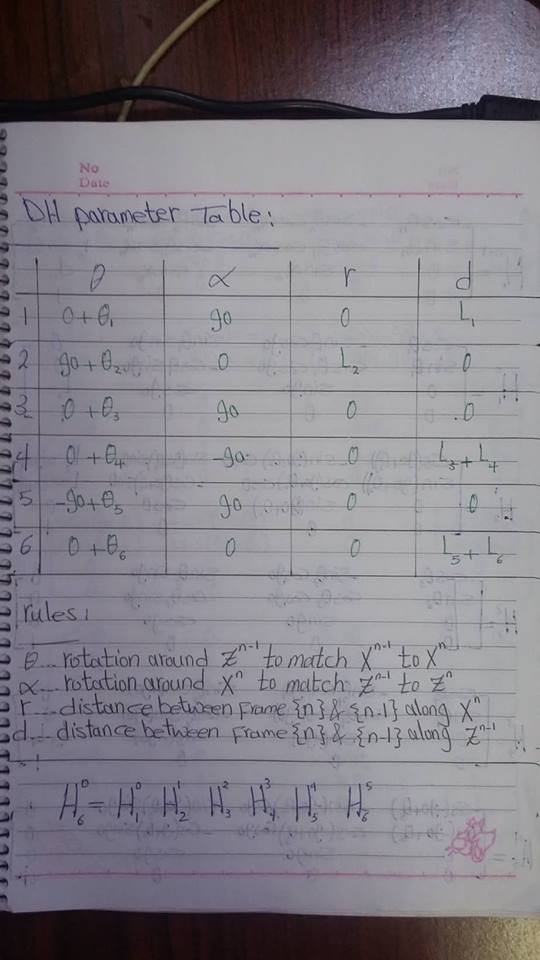 No
Date
DH parameter Table:
θ α r d
1 0+θ₁ 90 0 L₁
2 90+θ₂ 0 L₂ 0
3 0+θ₃ 90 0 0
4 0+θ₄ -90 0 L₃+L₄
5 -90+θ₅ 90 0 0
6 0+θ₆ 0 0 L₅+L₆
rules:
θ... rotation around Zⁿ⁻¹ to match Xⁿ⁻¹ to Xⁿ
α... rotation around Xⁿ to match Zⁿ⁻¹ to Zⁿ
r... distance between Frame {n} & {n-1} along Xⁿ
d... distance between Frame {n} & {n-1} along Zⁿ⁻¹
H₆⁰ = H₁⁰ H₂¹ H₃² H₄³ H₅⁴ H₆⁵